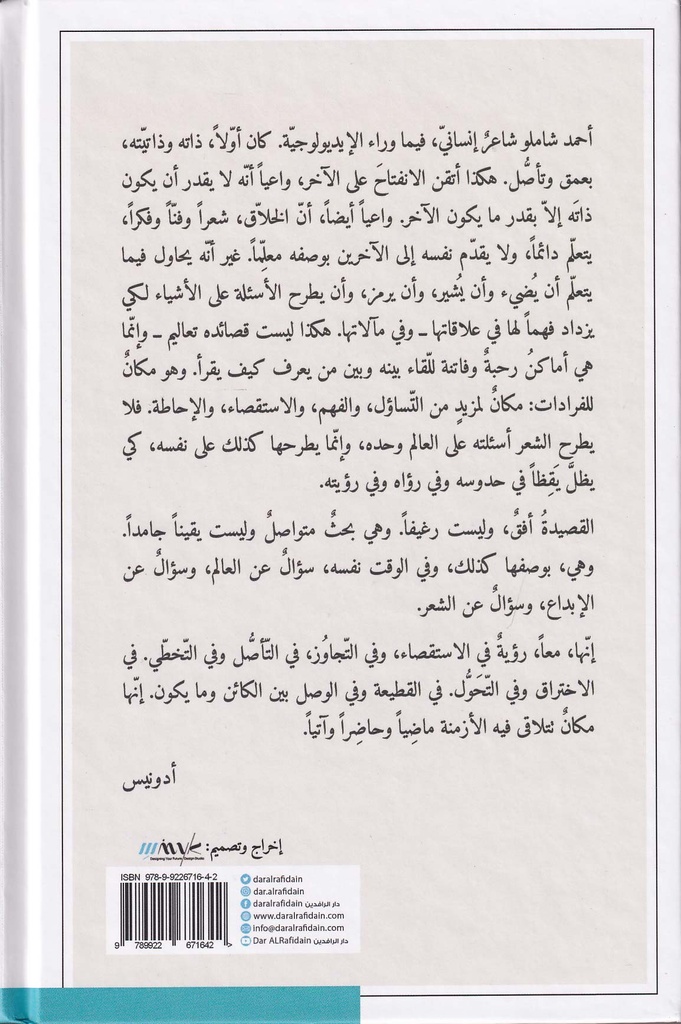 أحمد شاملو شاعرٌ إنسانيّ، فيما وراء الإيديولوجيّة. كان أوّلاً، ذاته وذاتيّته،
بعمق وتأصُّل. هكذا أتقن الانفتاحَ على الآخر، واعياً أنّه لا يقدر أن يكون
ذاتَه إلاّ بقدر ما يكون الآخر. واعياً أيضاً، أنّ الخلاّق، شعراً وفنّاً وفكراً،
يتعلّم دائماً، ولا يقدّم نفسه إلى الآخرين بوصفه معلّماً. غير أنّه يحاول فيما
يتعلّم أن يُضيء وأن يُشير، وأن يرمز، وأن يطرح الأسئلة على الأشياء لكي
يزداد فهماً لها في علاقاتها ـ وفي مآلاتها. هكذا ليست قصائده تعاليم ـ وإنّما
هي أماكنُ رحبةٌ وفاتنة للّقاء بينه وبين من يعرف كيف يقرأ. وهو مكانٌ
للفرادات: مكانٌ لمزيدٍ من التّساؤل، والفهم، والاستقصاء، والإحاطة. فلا
يطرح الشعر أسئلته على العالم وحده، وإنّما يطرحها كذلك على نفسه، كي
يظلَّ يَقِظاً في حدوسه وفي رؤاه وفي رؤيته.
القصيدةُ أفقٌ، وليست رغيفاً. وهي بحثٌ متواصلٌ وليست يقيناً جامداً.
وهي، بوصفها كذلك، وفي الوقت نفسه، سؤالٌ عن العالم، وسؤالٌ عن
الإبداع، وسؤالٌ عن الشعر.
إنّها، معاً، رؤيةٌ في الاستقصاء، وفي التّجاوُز، في التّأصُّل وفي التّخطّي. في
الاختراق وفي التّحَوُّل. في القطيعة وفي الوصل بين الكائن وما يكون. إنّها
مكانٌ تتلاقى فيه الأزمنة ماضِياً وحاضِراً وآتياً.
أدونيس
إخراج وتصميم:
Designing Your Future Design Studio
ISBN 978-9-9226716-4-2
9 789922 671642 >
daralrafidain
dar.alrafidain
daralrafidain دار الرافدين
www.daralrafidain.com
info@daralrafidain.com
Dar ALRafidain دار الرافدين